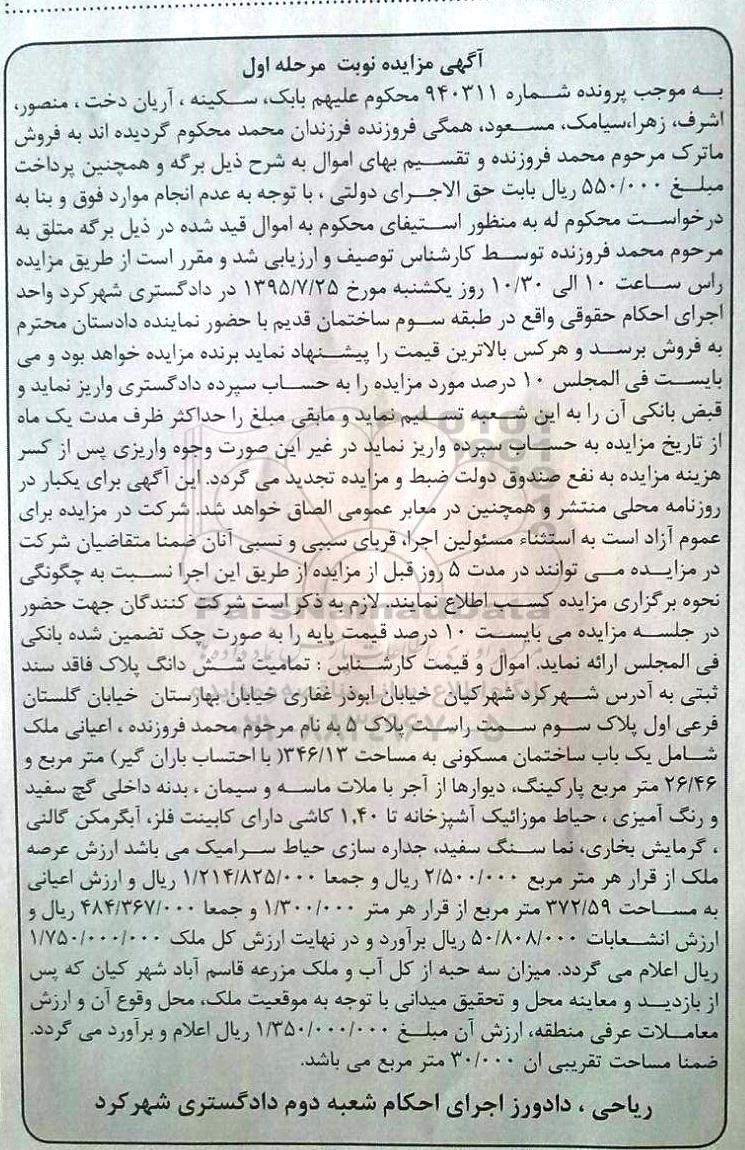 آگهی مزایده نوبت مرحله اول
به موجب پرونده شماره ۹۴۰۳۱۱ محکوم علیهم بابک، سکینه ، آریان دخت ، منصور،
اشرف، زهرا،سیامک، مسعود، همگی فروزنده فرزندان محمد محکوم گردیده اند به فروش
ماترک مرحوم محمد فروزنده و تقسیم بهای اموال به شرح ذیل برگه و همچنین پرداخت
مبلغ ۵۵۰/۰۰۰ ریال بابت حق الاجرای دولتی ، با توجه به عدم انجام موارد فوق و بنا به
درخواست محکوم له به منظور استیفای محکوم به اموال قید شده در ذیل برگه متلق به
مرحوم محمد فروزنده توسط کارشناس توصیف و ارزیابی شد و مقرر است از طریق مزایده
راس ساعت ۱۰ الی ۱۰/۳۰ روز یکشنبه مورخ ۱۳۹۵/۷/۲۵ در دادگستری شهرکرد واحد
اجرای احکام حقوقی واقع در طبقه سوم ساختمان قدیم با حضور نماینده دادستان محترم
به فروش برسد و هرکس بالاترین قیمت را پیشنهاد نماید برنده مزایده خواهد بود و می
بایست فی المجلس ۱۰ درصد مورد مزایده را به حساب سپرده دادگستری واریز نماید و
قبض بانکی آن را به این شعبه تسلیم نماید و مابقی مبلغ را حداکثر ظرف مدت یک ماه
از تاریخ مزایده به حساب سپرده واریز نماید در غیر این صورت وجوه واریزی پس از کسر
هزینه مزایده به نفع صندوق دولت ضبط و مزایده تجدید می گردد. این آگهی برای یکبار در
روزنامه محلی منتشر و همچنین در معابر عمومی الصاق خواهد شد. شرکت در مزایده برای
عموم آزاد است به استثناء مسئولین اجرا، قربای سببی و نسبی آنان ضمنا متقاضیان شرکت
در مزایده می توانند در مدت ۵ روز قبل از مزایده از طریق این اجرا نسبت به چگونگی
نحوه برگزاری مزایده کسب اطلاع نمایند. لازم به ذکر است شرکت کنندگان جهت حضور
ParsNamadData
در جلسه مزایده می بایست ۱۰ درصد قیمت پایه را به صورت چک تضمین شده بانکی
فی المجلس ارائه نماید. اموال و قیمت کارشناس : تمامیت شش دانگ پلاک فاقد سند
ثبتی به آدرس شهرکرد شهرکیان خیابان ابوذر غفاری خیابان بهارستان خیابان گلستان
فرعی اول پلاک سوم سمت راست پلاک ۵ به نام مرحوم محمد فروزنده ، اعیانی ملک
شامل یک باب ساختمان مسکونی به مساحت ۳۴۶/۱۳( با احتساب باران گیر) متر مربع و
۲۶/۴۶ متر مربع پارکینگ، دیوارها از آجر با ملات ماسه و سیمان ، بدنه داخلی گچ سفید
و رنگ آمیزی ، حیاط موزائیک آشپزخانه تا ۱,۴۰ کاشی دارای کابینت فلز، آبگرمکن گالنی
، گرمایش بخاری، نما سنگ سفید، جداره سازی حیاط سرامیک می باشد ارزش عرصه
ملک از قرار هر متر مربع ۲/۵۰۰/۰۰۰ ریال و جمعا ۱/۲۱۴/۸۲۵/۰۰۰ ریال و ارزش اعیانی
به مساحت ۳۷۲/۵۹ متر مربع از قرار هر متر ۱/۳۰۰/۰۰۰ و جمعا ۴۸۴/۳۶۷/۰۰۰ ریال و
ارزش انشعابات ۵۰/۸۰۸/۰۰۰ ریال برآورد و در نهایت ارزش کل ملک ۱/۷۵۰/۰۰۰/۰۰۰
ریال اعلام می گردد. میزان سه حبه از کل آب و ملک مزرعه قاسم آباد شهر کیان که پس
از بازدید و معاینه محل و تحقیق میدانی با توجه به موقعیت ملک، محل وقوع آن و ارزش
معاملات عرفی منطقه، ارزش آن مبلغ ۱/۳۵۰/۰۰۰/۰۰۰ ریال اعلام و برآورد می گردد.
ضمنا مساحت تقریبی ان ۳۰/۰۰۰ متر مربع می باشد.
ریاحی ، دادورز اجرای احکام شعبه دوم دادگستری شهرکرد